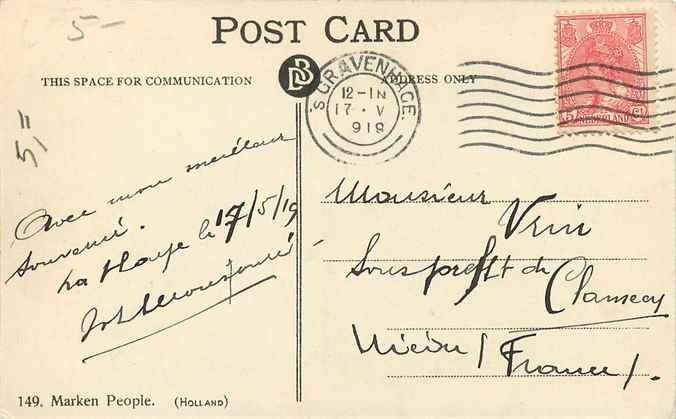 5-
POST CARD
THIS SPACE FOR COMMUNICATION
DB
ADDRESS ONLY
'S GRAVENHAGE.
12-1N
17 · V
918
5 Ct
NEDERLAND
Avec mon meilleur
souvenir.
La Haye le 17/5/19
Monsieur
Souspréfet de
Clamecy
Nièvre (France).
149. Marken People. (HOLLAND)